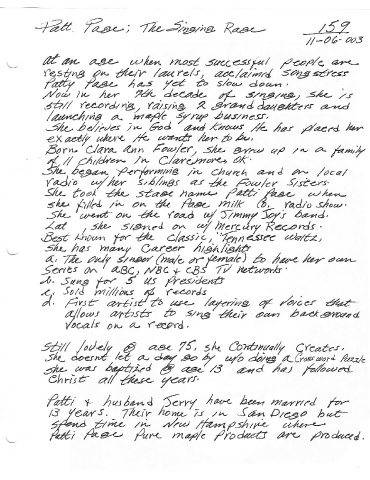 Patti Page; The Singing Rage
159
11-06-003
at an age when most successful people are
resting on their laurels, acclaimed songstress
Patty Page has yet to slow down.
Now in her 7th decade of singing, she is
still recording, raising 2 granddaughters and
launching a maple syrup business.
She believes in God and knows He has placed her
exactly where He wants her to be.
Born Clara Ann Fowler, she grew up in a family
of 11 children in Claremore OK.
She began performing in church and on local
radio w/her siblings as the Fowler Sisters.
She took the stage name Patti Page when
she filled in on the Page Milk Co. radio show.
She went on the road w/ Jimmy Joy's band.
Lat , she signed on w/ Mercury Records.
Best known for the classic, "Tennessee Waltz,
she has many Career highlights
a. The only singer (male or female) to have her own
Series on ABC, NBC & CBS TV networks.
b. Sang for 5 US Presidents
c. Sold millions of records
d. First artist to use layering of voices that
allows artists to sing their own background
vocals on a record.
Still lovely @ age 75, she Continually Creates.
She doesnt let a day go by w/o doing a Crossword Puzzle
she was baptised @ age 13 and has followed
Christ all those years.
Patti & husband Jerry have been married for
13 years. Their home is in San Diego but
spend time in New Hampshire where
Patti Page Pure maple Products are produced.